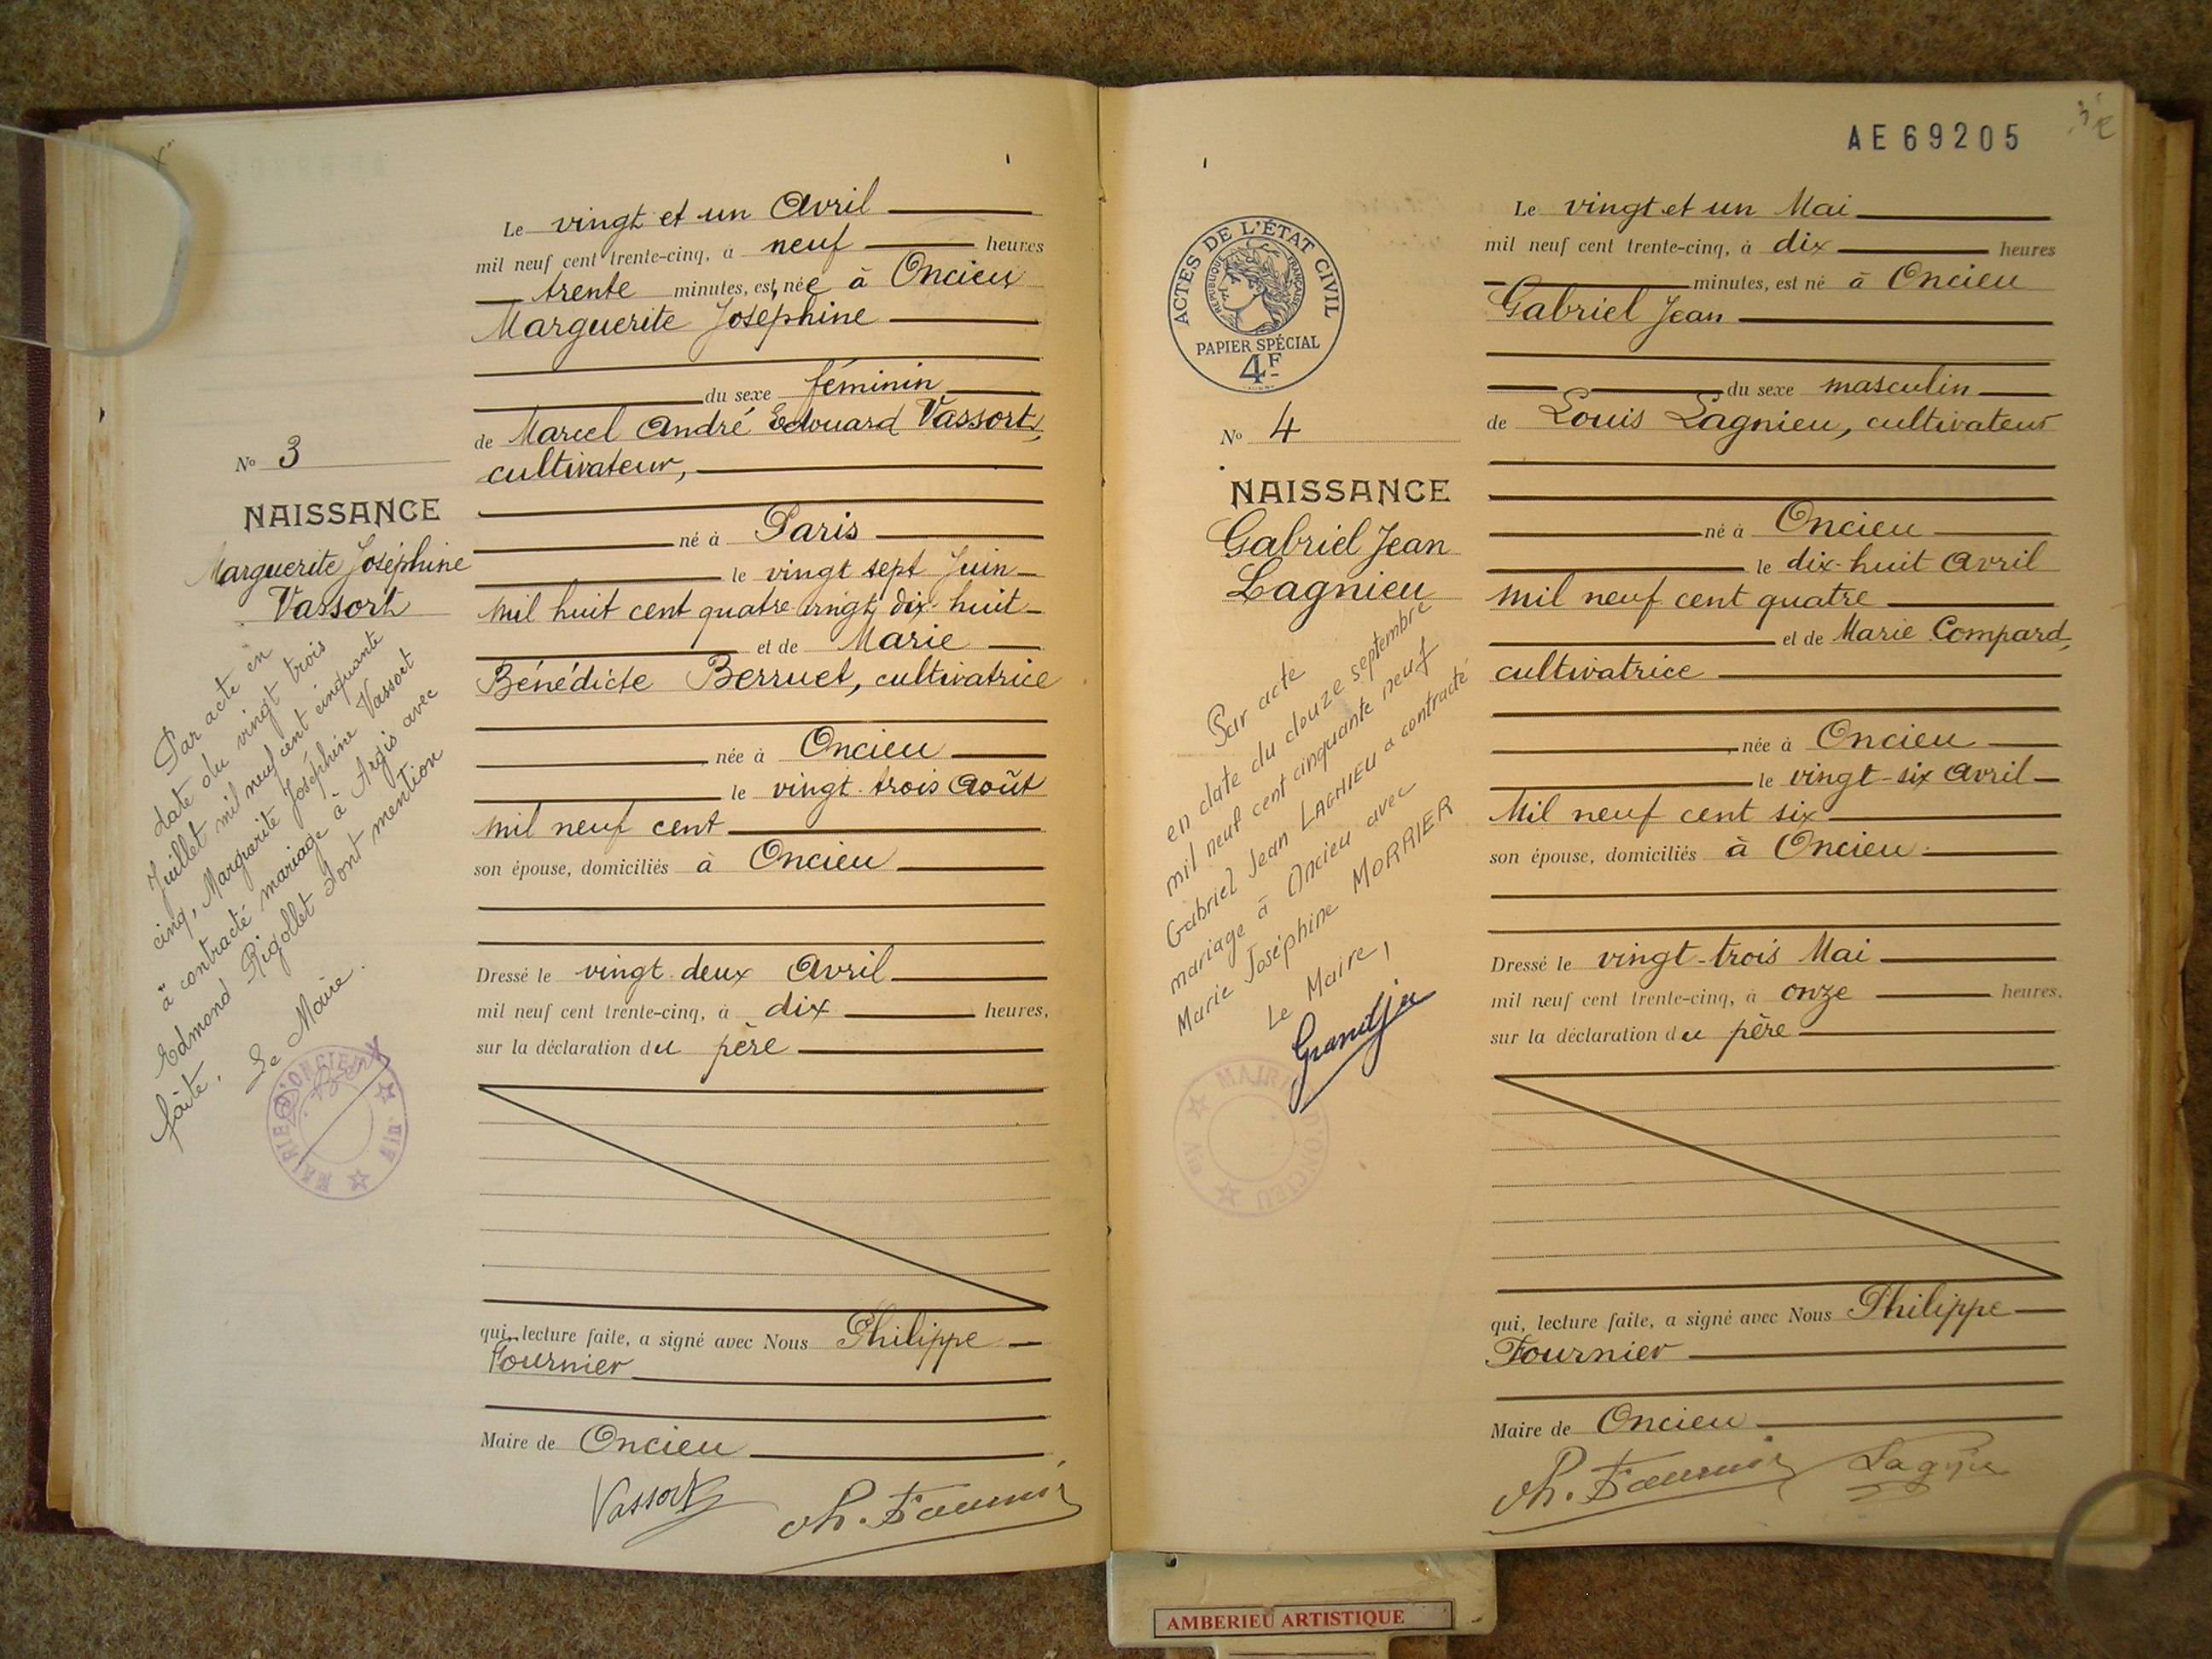 Le vingt et un Avril
mil neuf cent trente-cinq, à neuf heures
trente minutes, est née à Oncieu
Marguerite Joséphine
du sexe féminin
de Marcel André Edouard Vassort,
cultivateur,
né à Paris
le vingt sept Juin
mil huit cent quatre vingt dix-huit
et de Marie
Bénédicte Berruet, cultivatrice
née à Oncieu
le vingt-trois Août
mil neuf cent
son épouse, domiciliés à Oncieu
Dressé le vingt deux Avril
mil neuf cent trente-cinq, à dix heures,
sur la déclaration du père
qui, lecture faite, a signé avec Nous Philippe
Fournier
Maire de Oncieu
Vassort
Ph. Fournier
No 3
NAISSANCE
Marguerite Joséphine
Vassort
Par acte en
date du vingt trois
Juillet mil neuf cent cinquante
cinq, Marguerite Joséphine Vassort
a contracté mariage à Argis avec
Edmond Rigollet dont mention
faite.
Le Maire.
MAIRIE D'ONCIEU
AIN
AE69205
ACTES DE L'ÉTAT CIVIL
REPUBLIQUE FRANÇAISE
PAPIER SPÉCIAL
4F
No 4
NAISSANCE
Gabriel Jean
Lagnieu
Par acte
en date du douze septembre
mil neuf cent cinquante neuf
Gabriel Jean LAGNIEU a contracté
mariage à Oncieu avec
Marie Joséphine MORRIER
Le Maire,
MAIRIE D'ONCIEU
Ain
Le vingt et un Mai
mil neuf cent trente-cinq, à dix heures
minutes, est né à Oncieu
Gabriel Jean
du sexe masculin
de Louis Lagnieu, cultivateur
né à Oncieu
le dix-huit Avril
mil neuf cent quatre
et de Marie Compard,
cultivatrice
née à Oncieu
le vingt-six Avril
Mil neuf cent six
son épouse, domiciliés à Oncieu
Dressé le vingt-trois Mai
mil neuf cent trente-cinq, à onze heures,
sur la déclaration du père
qui, lecture faite, a signé avec Nous Philippe
Fournier
Maire de Oncieu
Ph. Fournier
AMBERIEU ARTISTIQUE